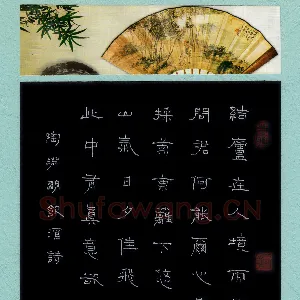 結廬在人境而
問君何能爾心
採菊東籬下悠
山氣日夕佳飛
此中有眞意欲
陶淵明飲酒詩
Shufawang.CN